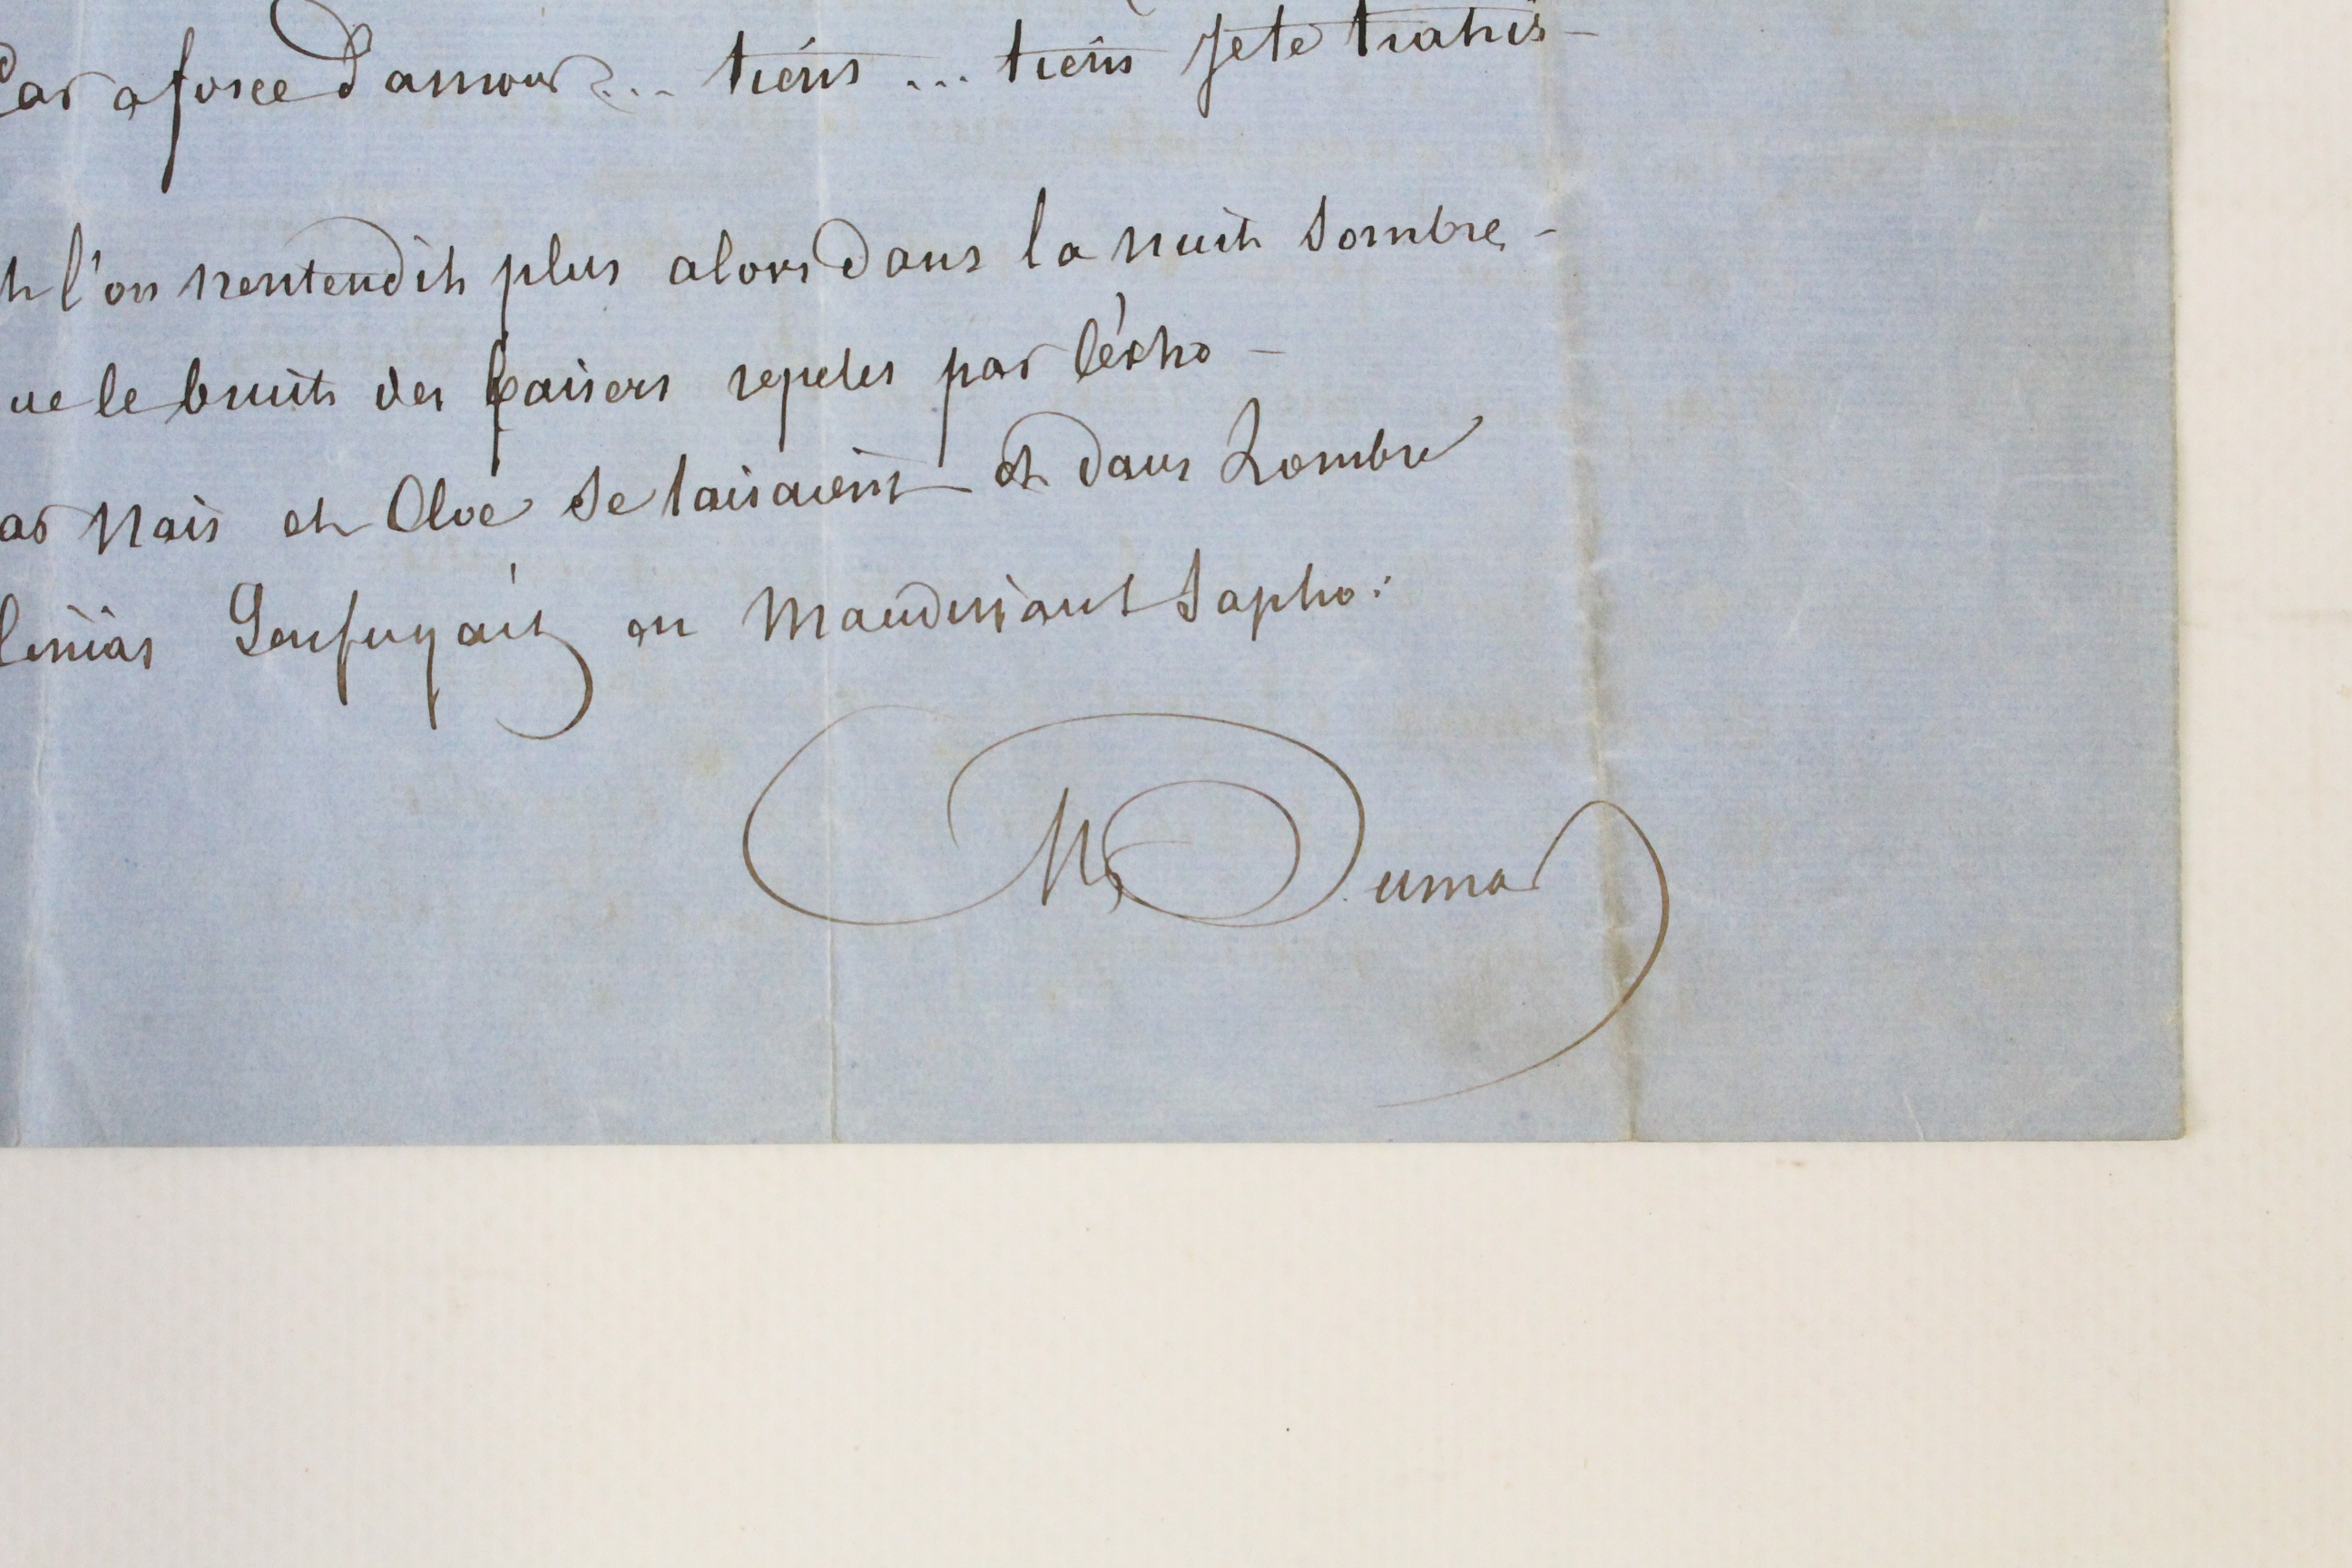 Car a force d'amour... tiens... tiens je te trahis -
l'on n'entendit plus alors dans la nuit sombre -
ue le bruit des baisers repetes par l'écho -
Nais et Cloe se taisaient - et dans L'ombre
S'enfuyait en maudissant Sapho.
Dumas